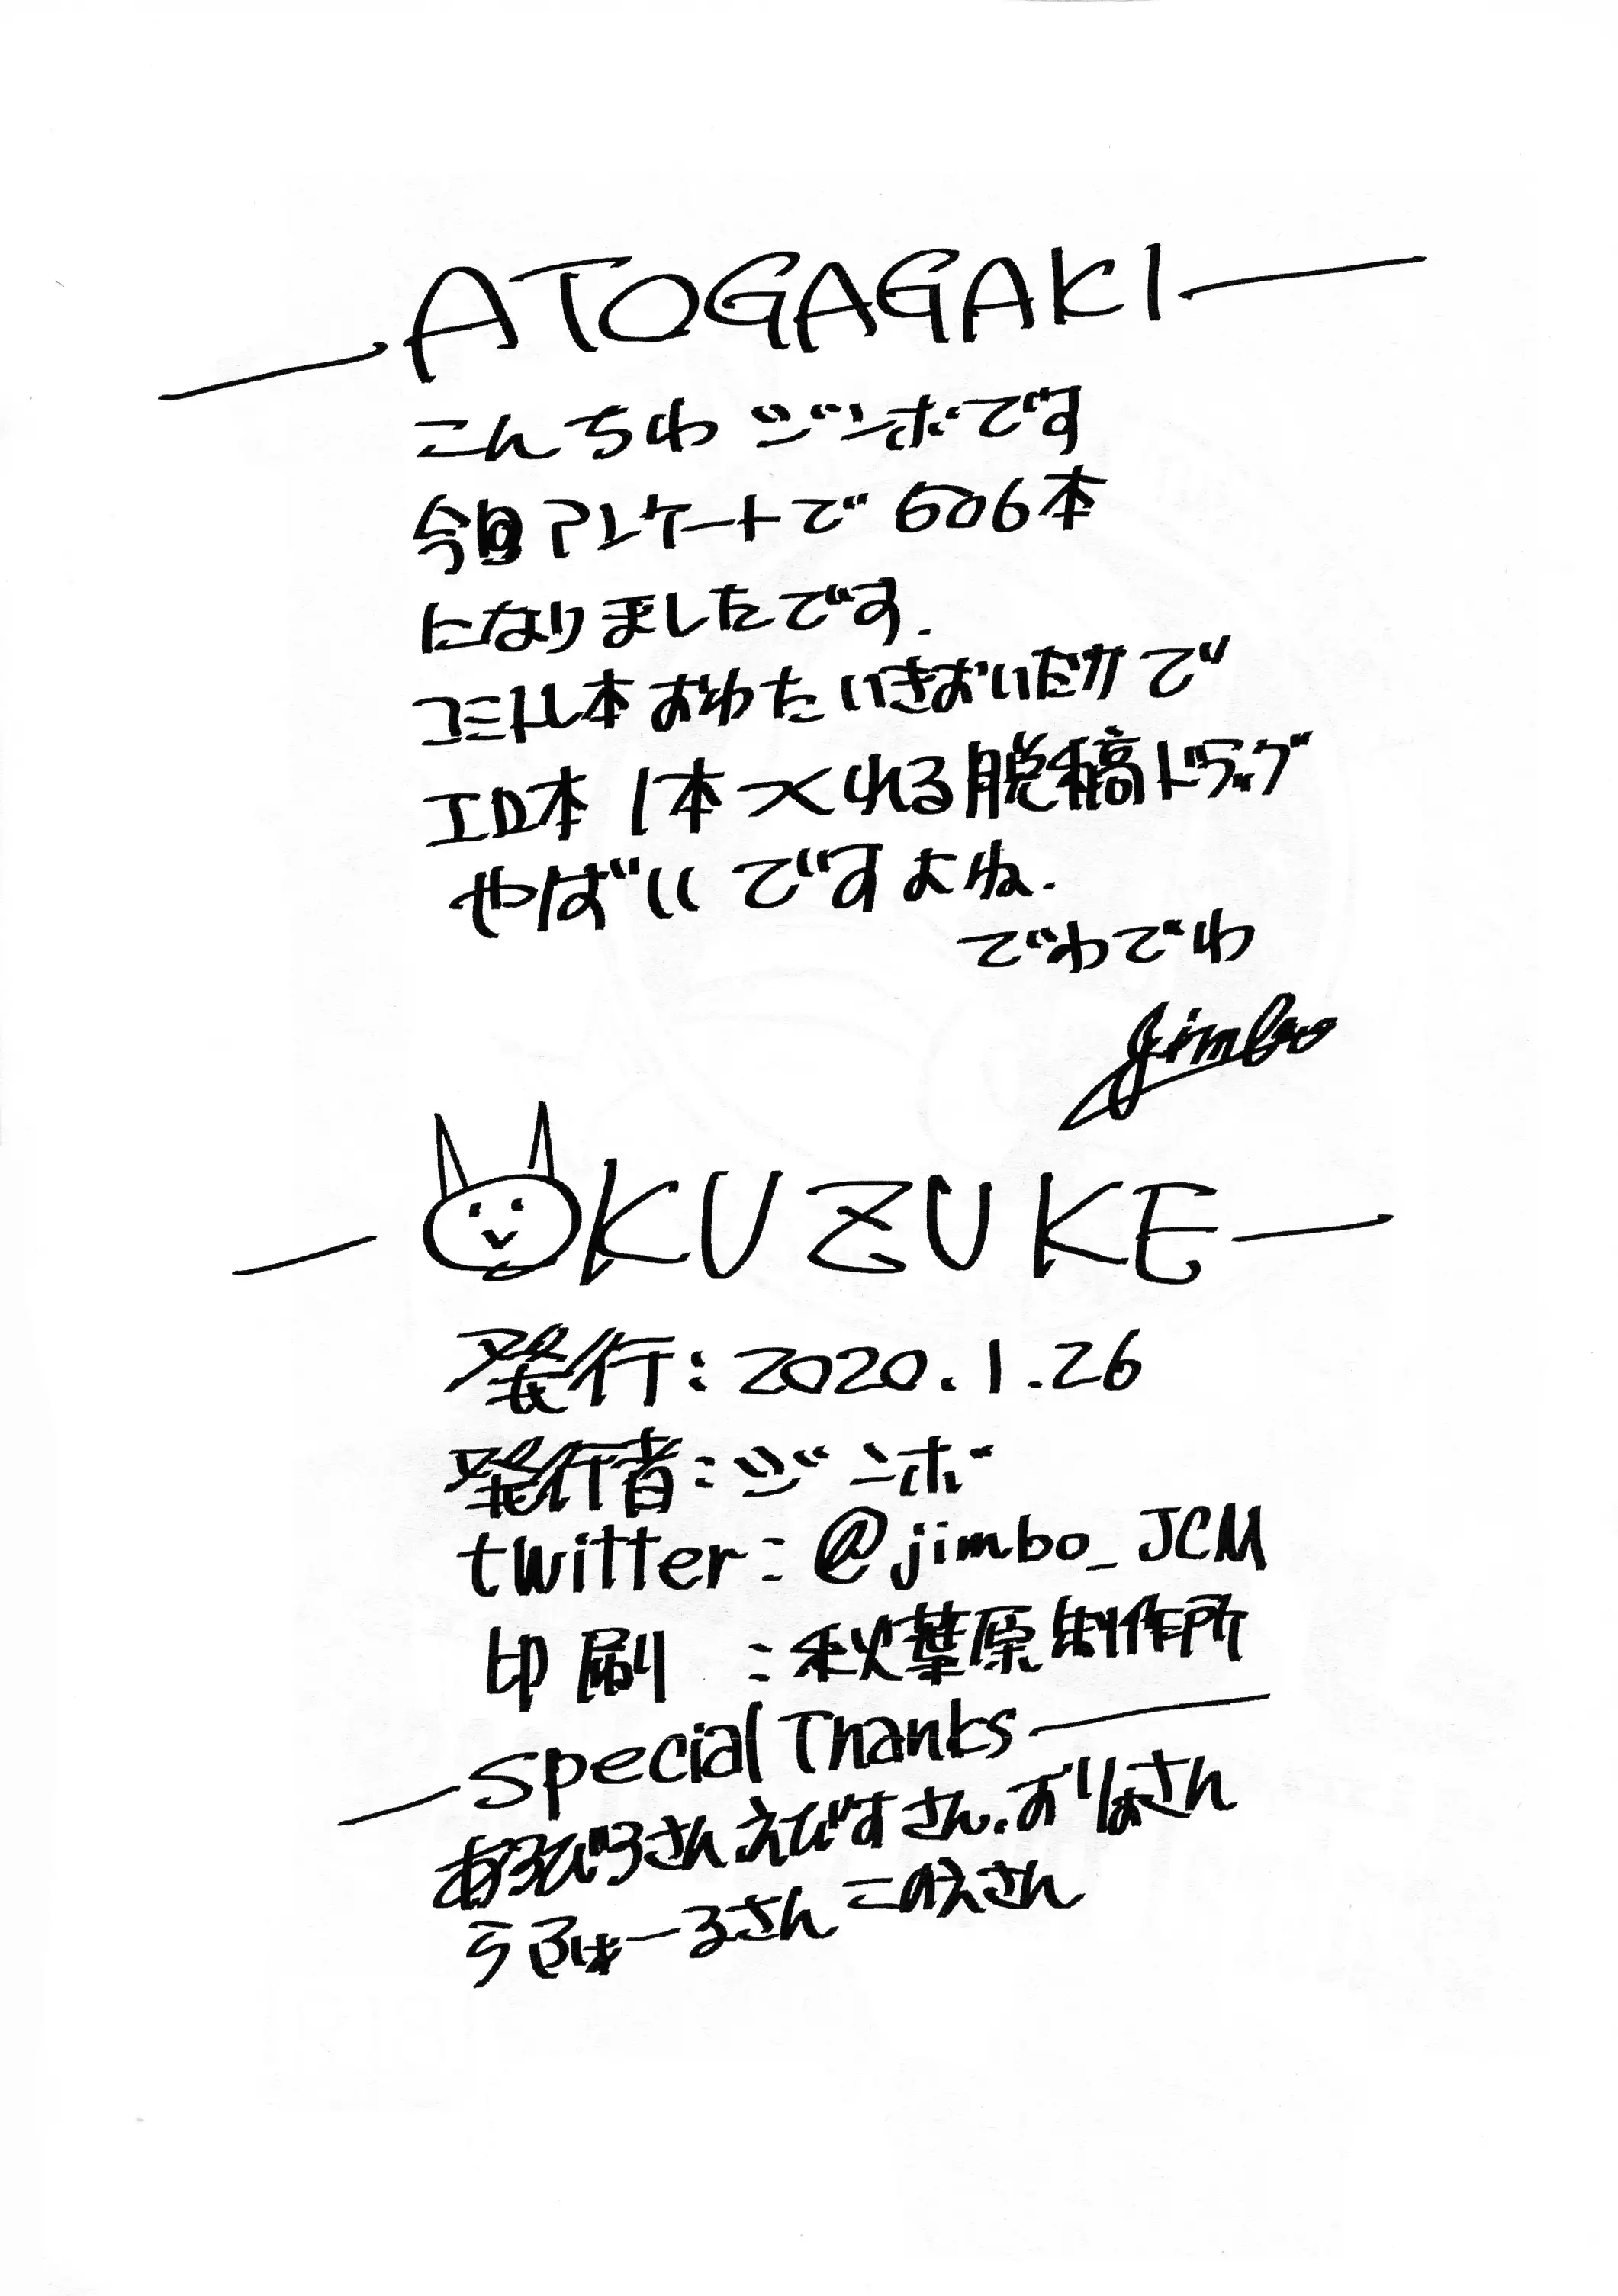 ATOGAGAKI
こんちわ ジンボです
今回アンケートで 606本
になりましたです.
コミトレ本おわたいきおいだけで
エロ本1本つくれる脱稿ドラッグ
やばいですよね.
でわでわ
jimbo
OKUZUKE
発行:2020.1.26
発行者:ジンボ
twitter:@jimbo_JCM
印刷 :秋葉原制作所
Special Thanks
えびすさん.おりはさん
さん このえさん